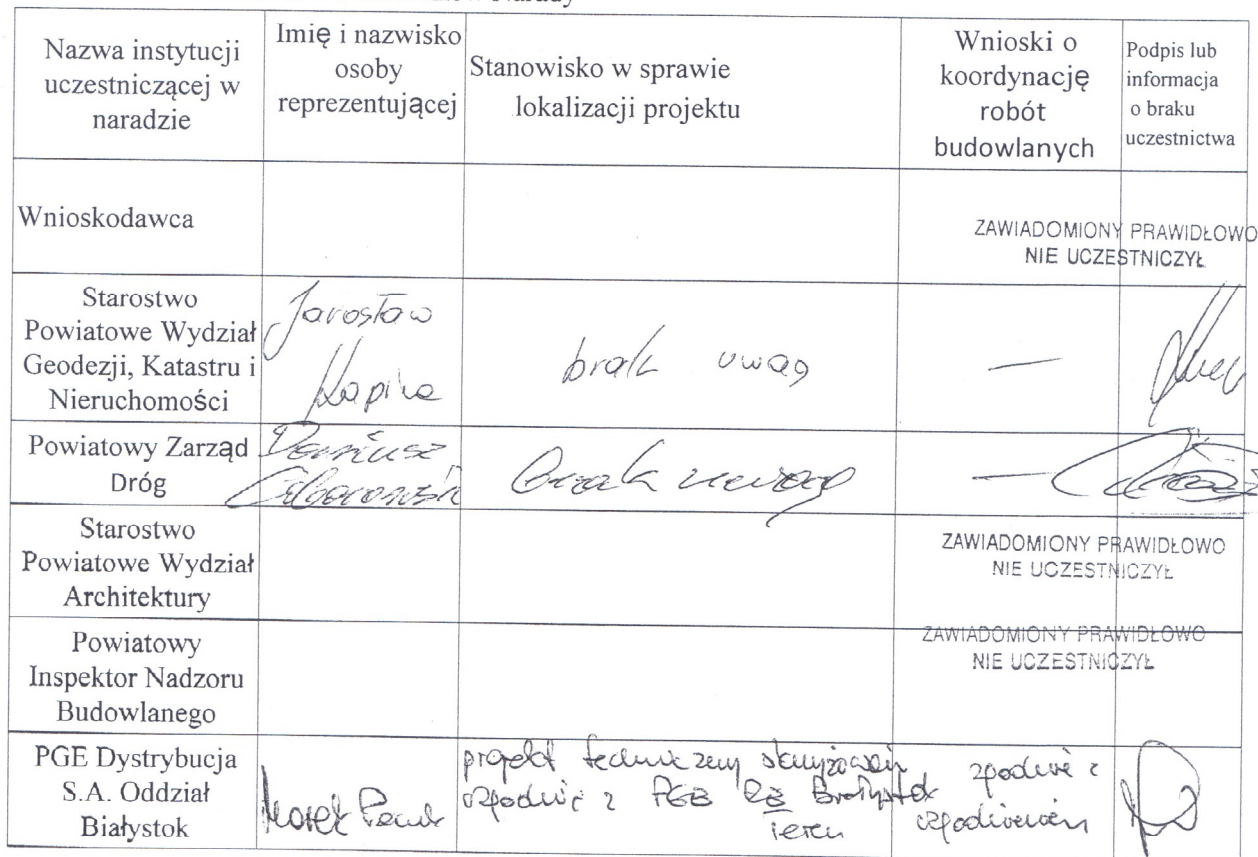 Narady
Nazwa instytucji
uczestniczącej w
naradzie
Imię i nazwisko
osoby
reprezentującej
Stanowisko w sprawie
lokalizacji projektu
Wnioski o
koordynację
robót
budowlanych
Podpis lub
informacja
o braku
uczestnictwa
Wnioskodawca
ZAWIADOMIONY PRAWIDŁOWO
NIE UCZESTNICZYŁ
Starostwo
Powiatowe Wydział
Geodezji, Katastru i
Nieruchomości
Jarosław
brak uwag
—
Powiatowy Zarząd
Dróg
Dariusz
brak uwag
—
Starostwo
Powiatowe Wydział
Architektury
ZAWIADOMIONY PRAWIDŁOWO
NIE UCZESTNICZYŁ
Powiatowy
Inspektor Nadzoru
Budowlanego
ZAWIADOMIONY PRAWIDŁOWO
NIE UCZESTNICZYŁ
PGE Dystrybucja
S.A. Oddział
Białystok
Marek
projekt techniczny skrzyżowań
uzgodnić z PGE RE Białystok
Teren
zgodnie z
uzgodnieniem